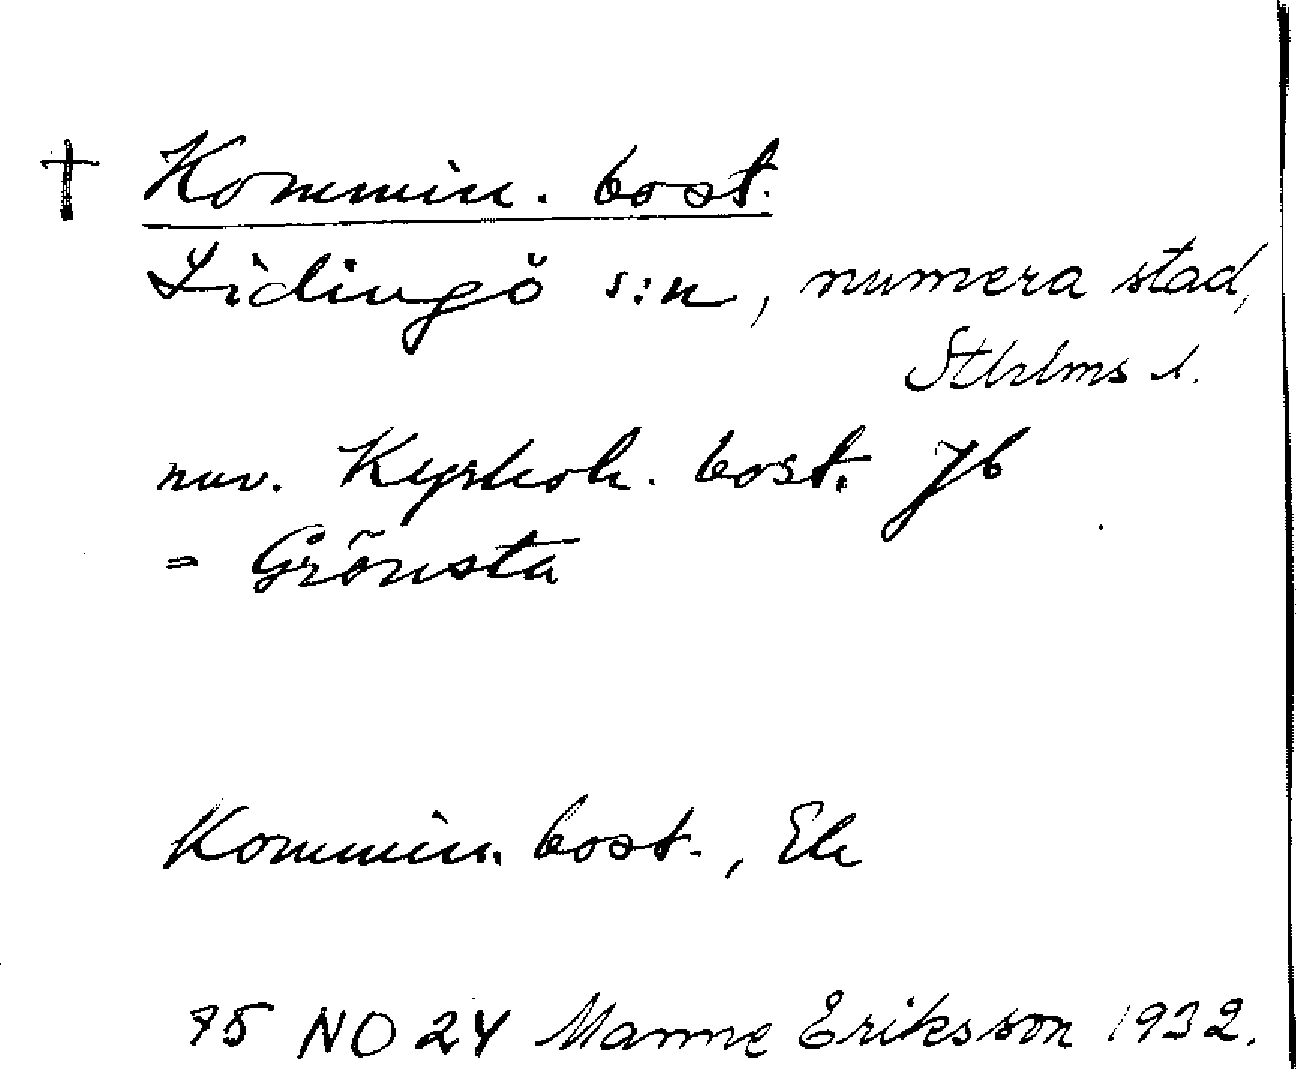 † Kommin. bost.
Lidingö s:n, numera stad,
Sthlms l.
nuv. Kyrkoh. bost. Jb
= Grönsta
Kommin. bost., Ek
75 NO 24 Manne Eriksson 1932.